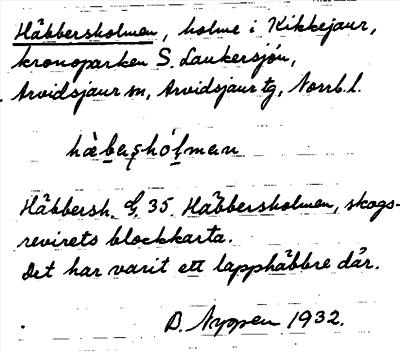 Häbbersholmen, holme i Kikkejaur,
kronoparken S. Laukersjön,
Arvidsjaur sn, Arvidsjaur tg, Norrb. l.
hà̀bası̣hólmean
Häbbersh. G 35 Häbbersholmen, skogs-
revirets blockkarta.
Det har varit ett lapphäbbre där.
D. Nyppen 1932.